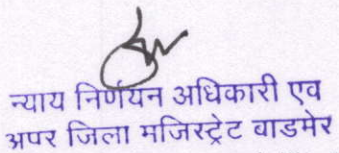 न्याय निर्णयन अधिकारी एव
अपर जिला मजिस्ट्रेट वाडमेर